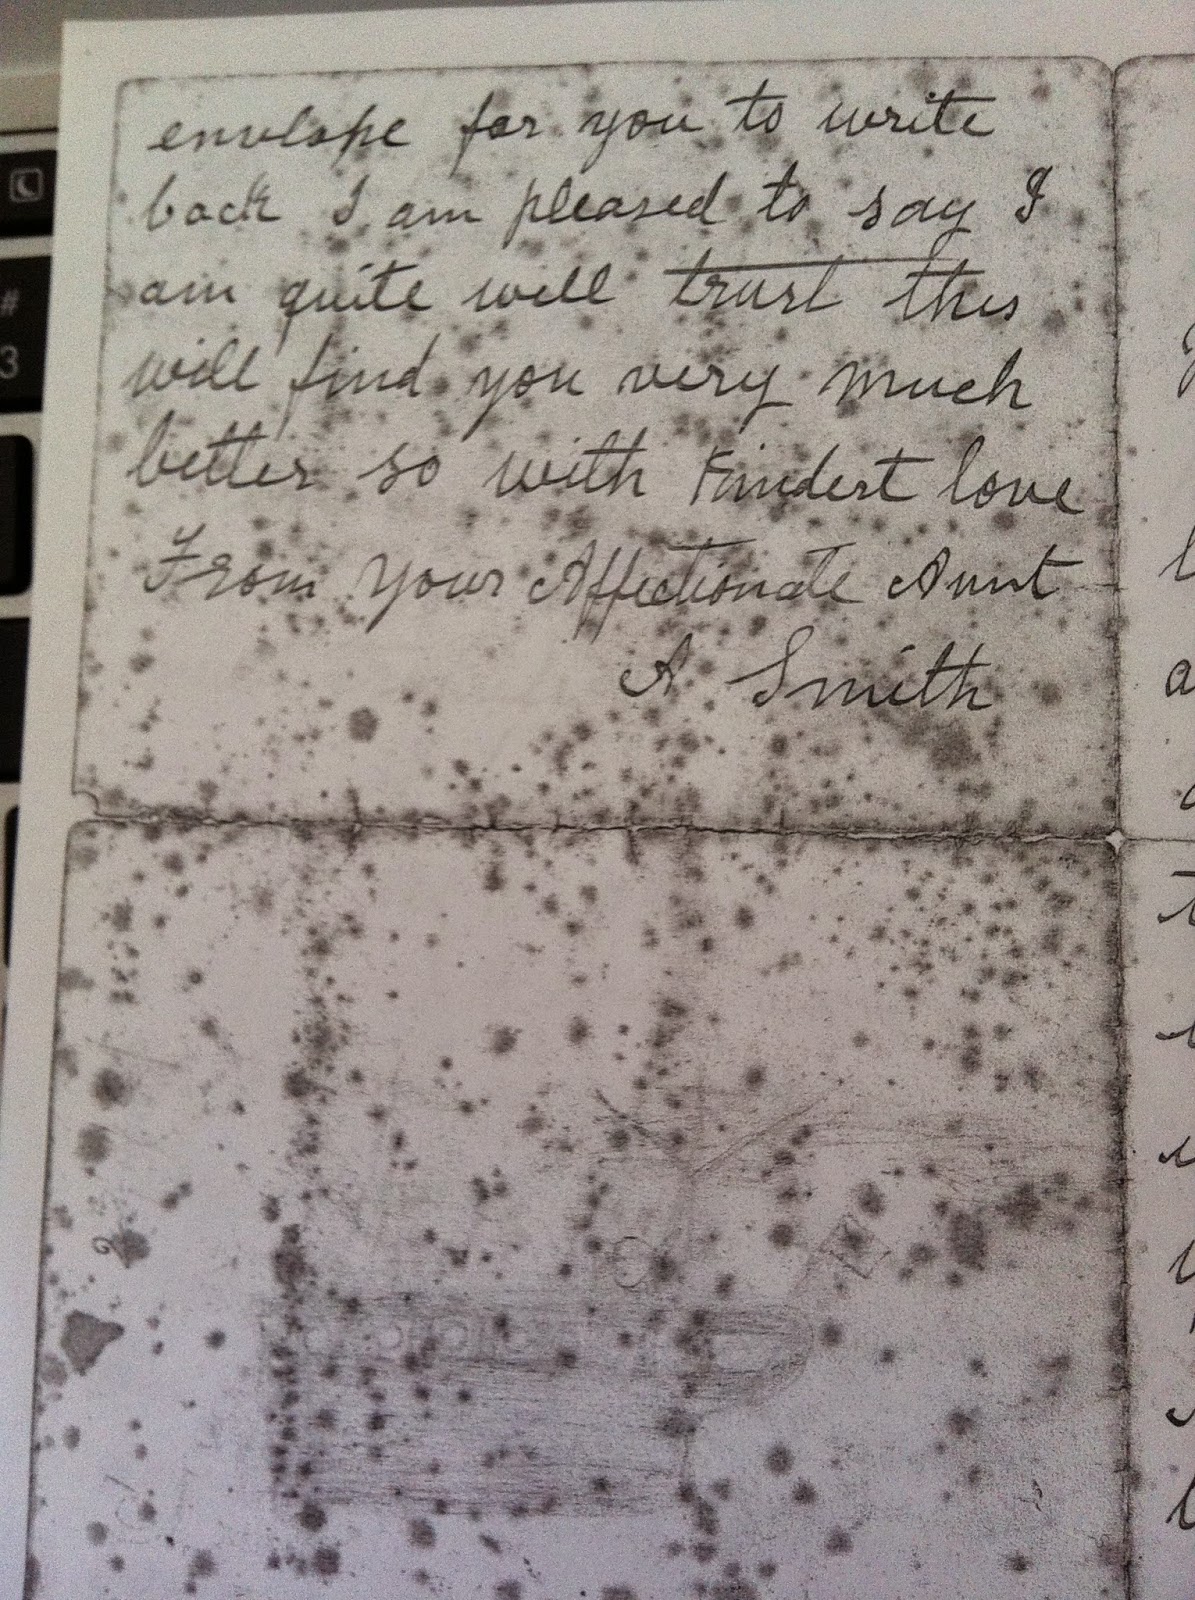 envelope for you to write
back I am pleased to say I
am quite well trust this
will find you very much
better so with Kindest love
From Your Affectionate Aunt
A Smith
#
3